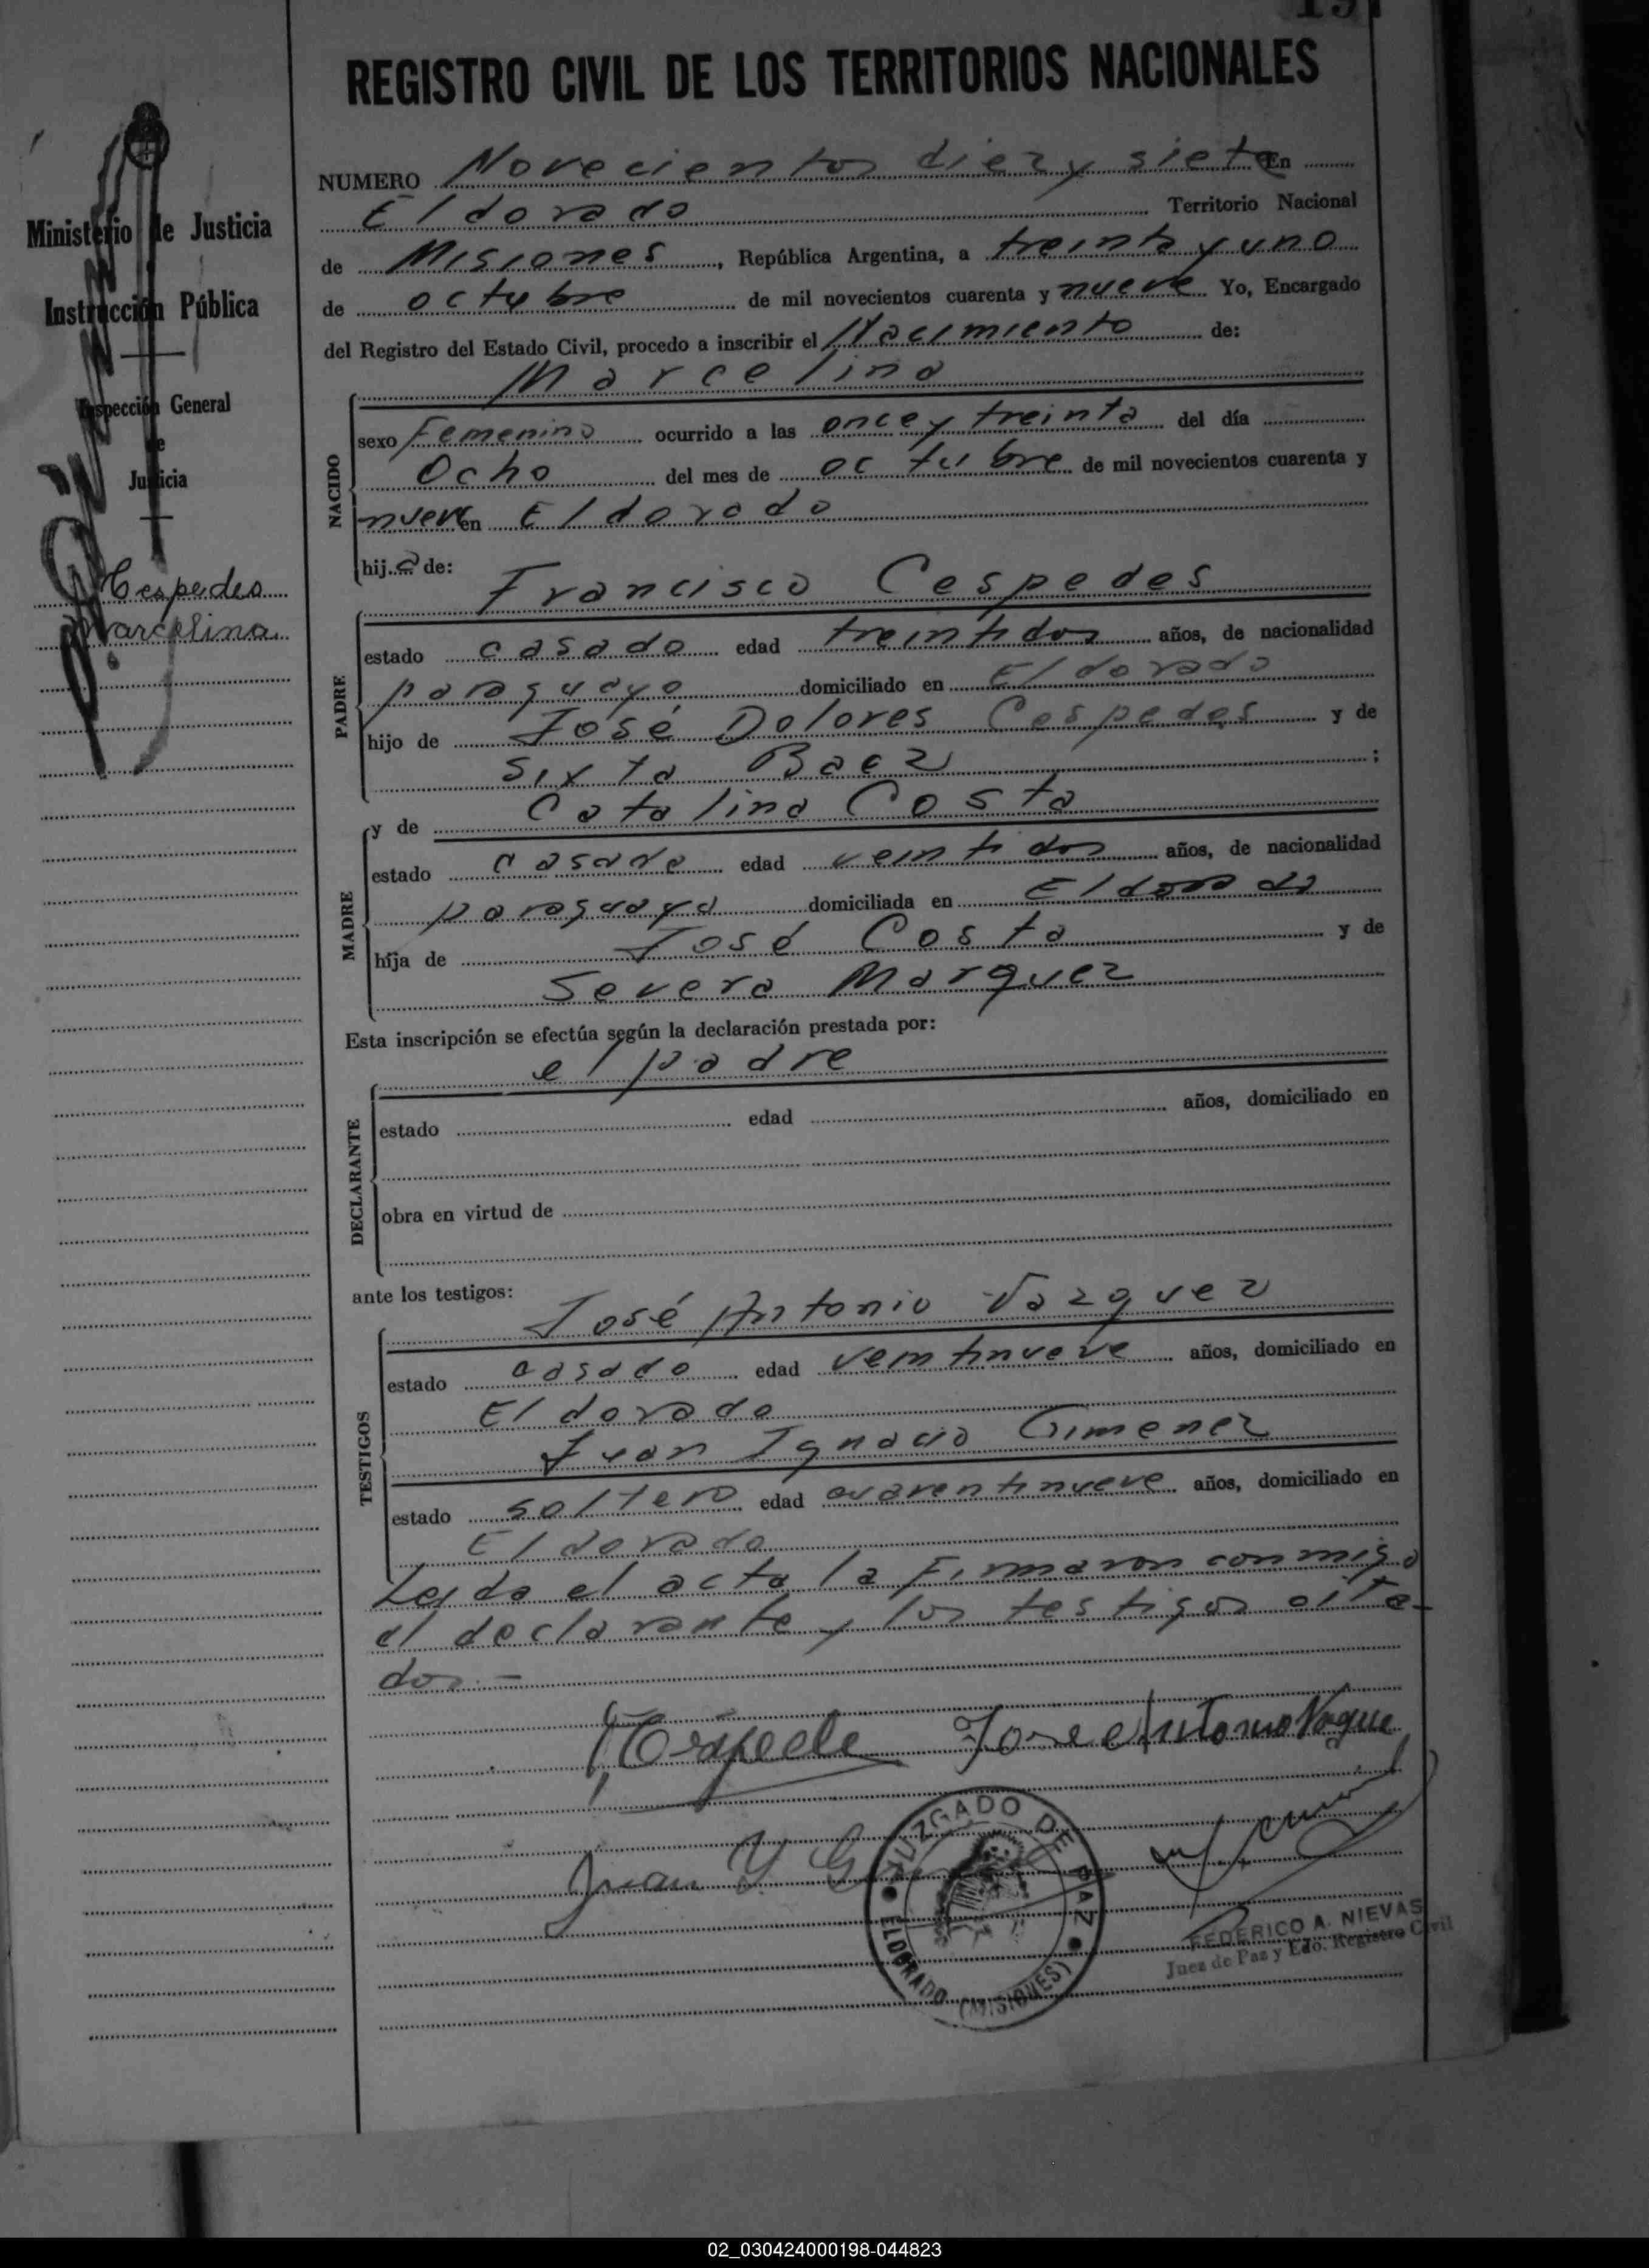 REGISTRO CIVIL DE LOS TERRITORIOS NACIONALES
NUMERO Novecientos diez y siete En
Eldorado Territorio Nacional
de Misiones, República Argentina, a treinta y uno
de octubre de mil novecientos cuarenta y nueve Yo, Encargado
del Registro del Estado Civil, procedo a inscribir el Nacimiento de:
Marcelina
NACIDO
sexo Femenino ocurrido a las once y treinta del día
Ocho del mes de octubre de mil novecientos cuarenta y
nueve en Eldorado
hija de:
Francisco Cespedes
PADRE
estado casado edad treintidos años, de nacionalidad
paraguayo domiciliado en Eldorado
hijo de José Dolores Cespedes y de
Sixta Baez ;
y de Catalina Costa
MADRE
estado casada edad veintidos años, de nacionalidad
paraguaya domiciliada en Eldorado
hija de José Costa y de
Severa Marquez
Esta inscripción se efectúa según la declaración prestada por:
el padre
DECLARANTE
estado edad años, domiciliado en
obra en virtud de
ante los testigos:
José Antonio Vazquez
TESTIGOS
estado casado edad veintinueve años, domiciliado en
Eldorado
Juan Ignacio Gimenez
estado soltero edad cuarentinueve años, domiciliado en
Eldorado
Leida el acta la Firmaron conmigo
el declarante y los testigos cita-
dos.-
Jose Antonio Vaque
Juan Y. G
JUZGADO DE PAZ
ELDORADO (MISIONES)
FEDERICO A. NIEVAS
Juez de Paz y Edo. Registro Civil
Ministerio de Justicia
Instrucción Pública
Inspección General
de
Justicia
Cespedes
Marcelina
02_030424000198-044823